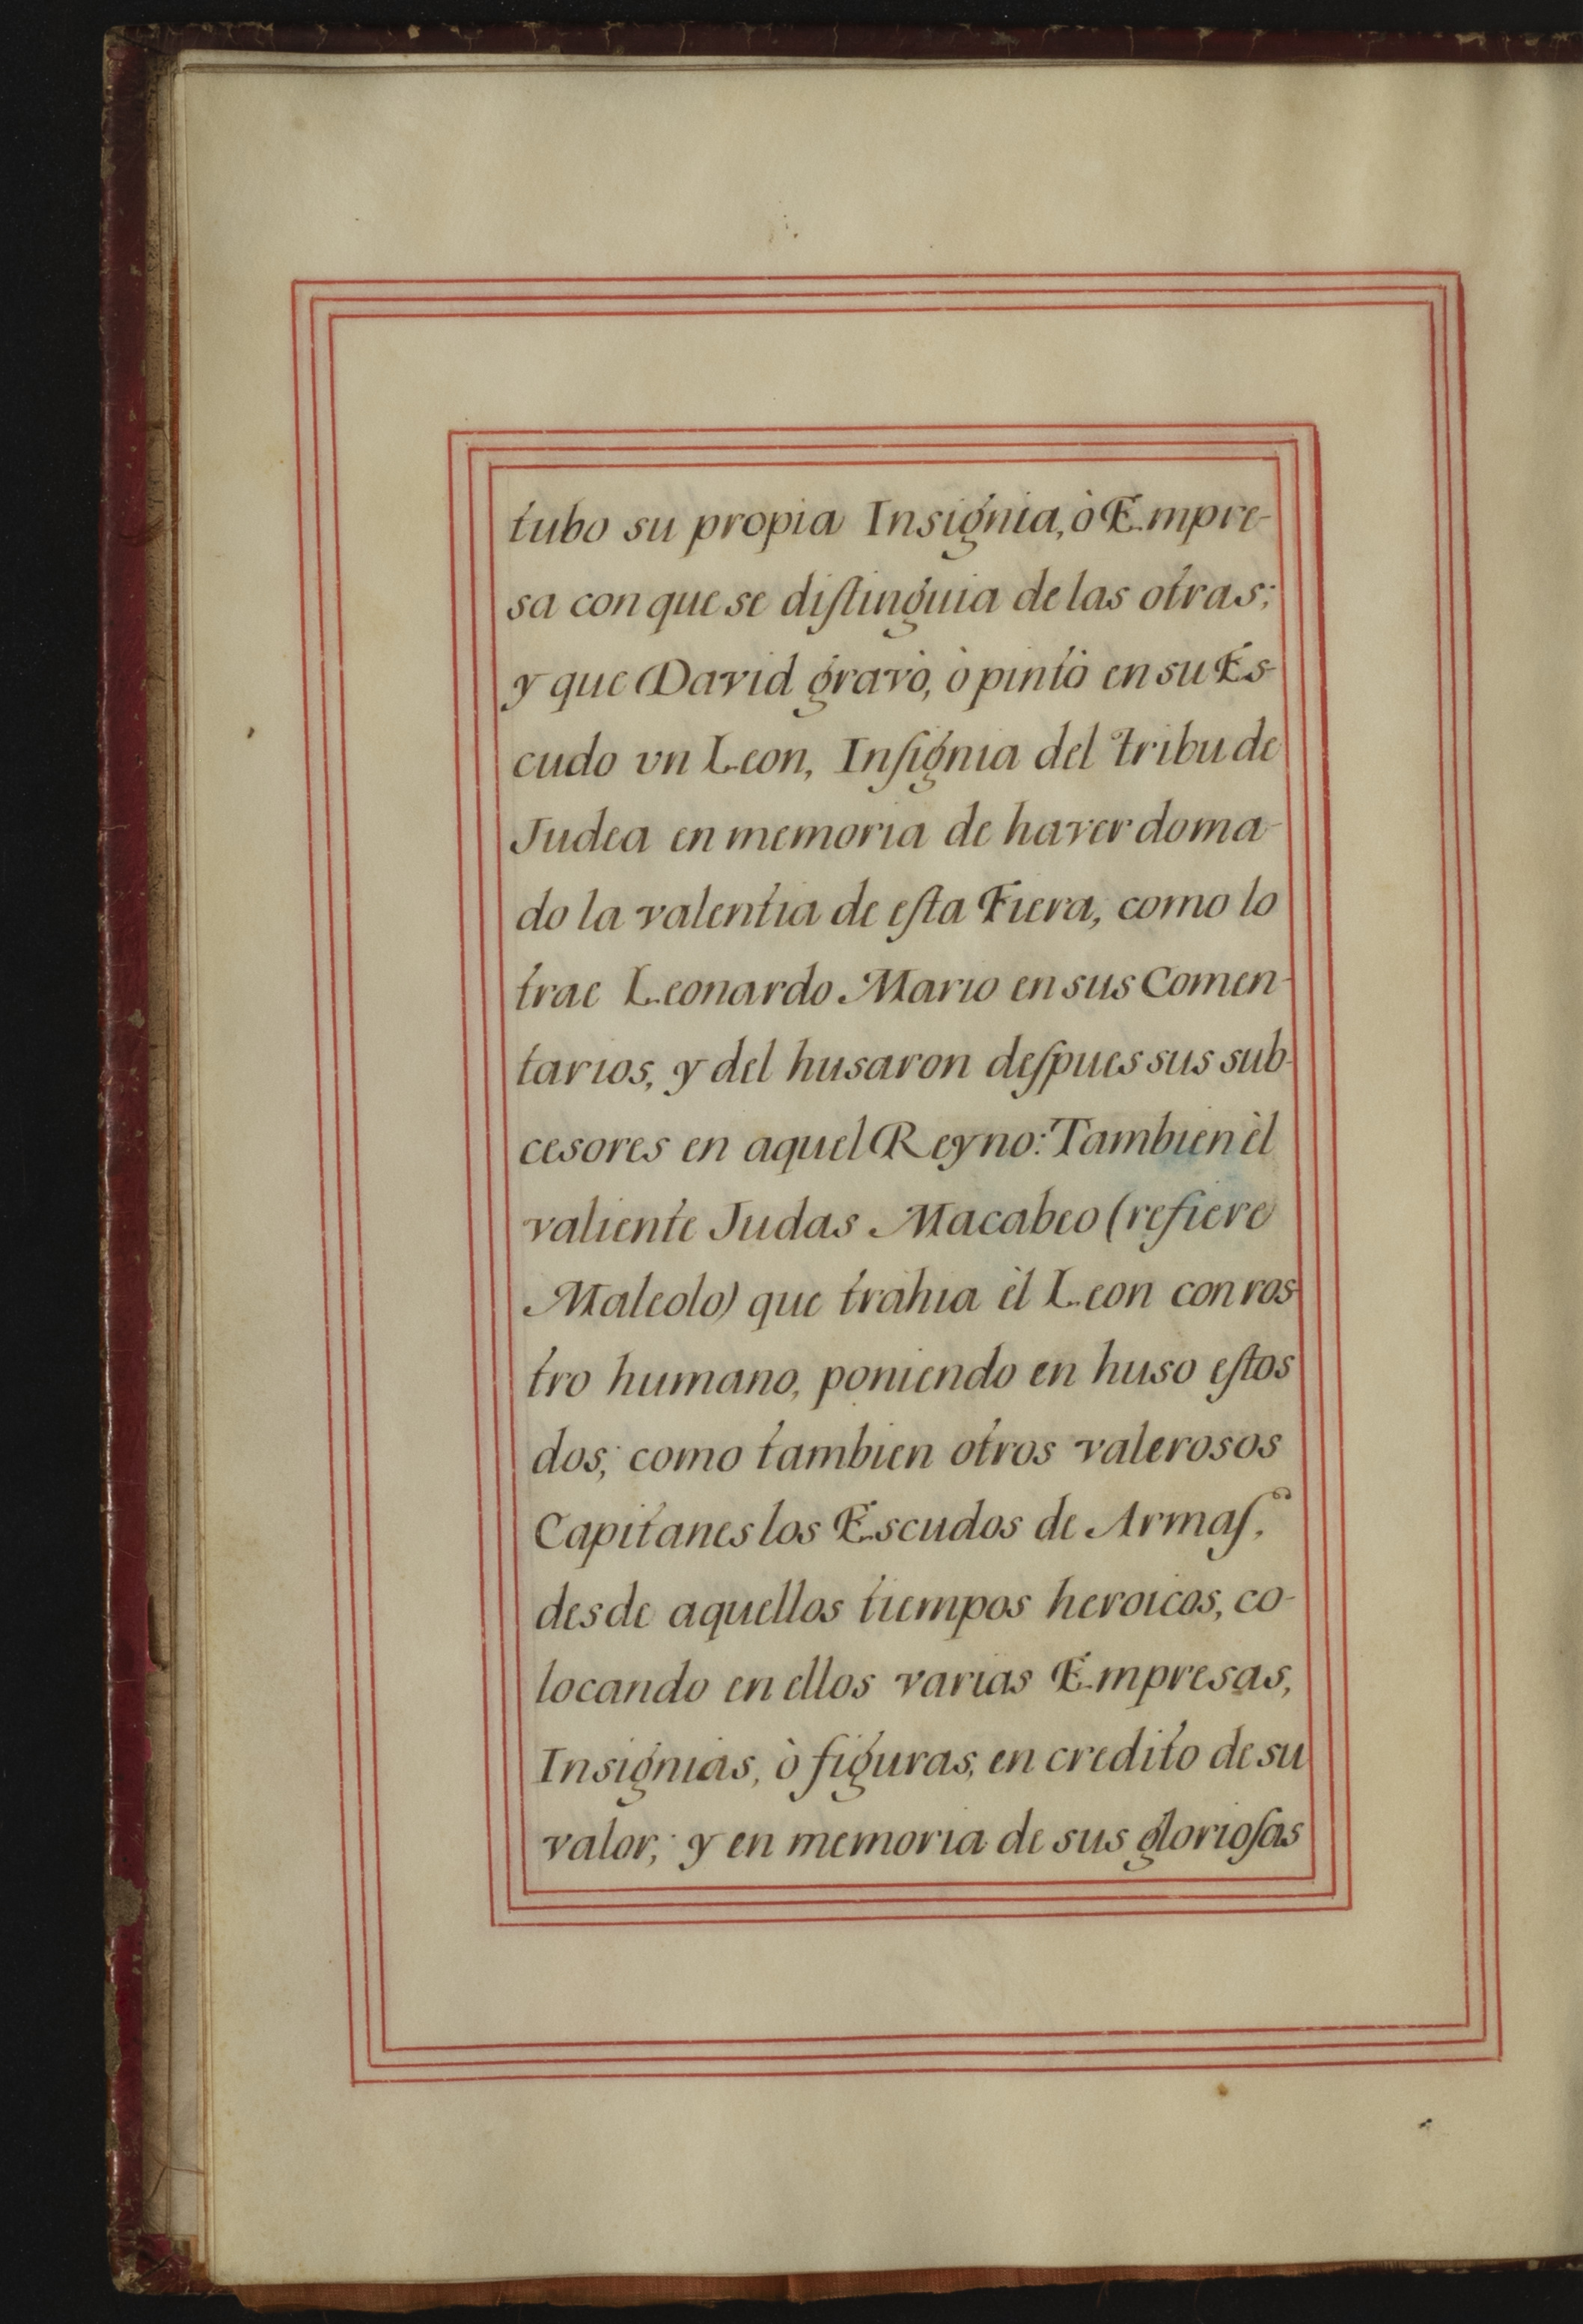 tubo su propia Insignia, ò Empre-
sa con que se diſtinguia de las otras;
y que David gravò, ò pintò en su Es-
cudo vn Leon, Inſignia del tribu de
Judea en memoria de haver doma-
do la valentia de eſta Fiera, como lo
trae Leonardo Mario en sus Comen-
tarios, y del husaron deſpues sus sub-
cesores en aquel Reyno: Tambien èl
valiente Judas Macabeo (refiere
Maleolo) que trahia èl Leon con ros-
tro humano, poniendo en huso eſtos
dos; como tambien otros valerosos
Capitanes los Escudos de Armaſ,
desde aquellos tiempos heroicos, co-
locando en ellos varias Empresas,
Insignias, ò figuras, en credito de su
valor; y en memoria de sus glorioſas